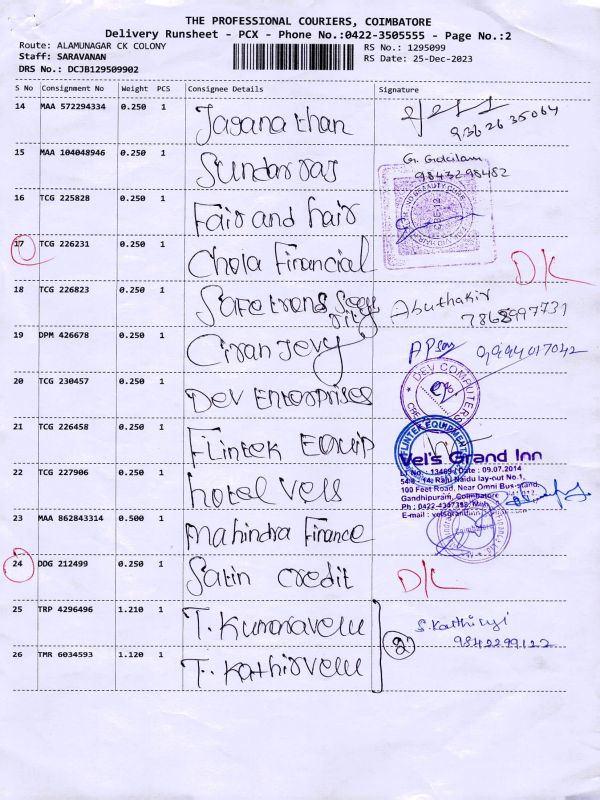 THE PROFESSIONAL COURIERS, COIMBATORE
Delivery Runsheet - PCX - Phone No.:0422-3505555 - Page No.:2
Route: ALAMUNAGAR CK COLONY RS No.: 1295099
Staff: SARAVANAN RS Date: 25-Dec-2023
DRS No.: DCJB129509902
S No Consignment No Weight PCS Consignee Details Signature
14 MAA 572294334 0.250 1 Jaganathan
9362635064
15 MAA 104048946 0.250 1 Sundar raj
9843298482
16 TCG 225828 0.250 1 Fair and hair
17 TCG 226231 0.250 1 Chola Financial D/L
18 TCG 226823 0.250 1 Safetrons Secu
rity Abuthakir
7868997731
19 DPM 426678 0.250 1 Ciranjevy 9994017042
20 TCG 230457 0.250 1 Dev Enterprises
DEV COMPUTERS
21 TCG 226458 0.250 1 Flintek Equip
FLINTEK EQUIPMENT
22 TCG 227906 0.250 1 hotel Vels
Vel's Grand Inn
LT No.: 13469 / Date : 09.07.2014
54/8 - 14, Raju Naidu lay-out No.1,
100 Feet Road, Near Omni Bus-stand,
Gandhipuram, Coimbatore
Ph : 0422-4347388, Mob
E-mail : velsgrandinn
23 MAA 862843314 0.500 1 Mahindra Finance
24 DDG 212499 0.250 1 Satin credit D/L
25 TRP 4296496 1.210 1 T. Kumaravelu
S. Kathirvji
9842299122
2
26 TMR 6034593 1.120 1 T. Kathirvelu